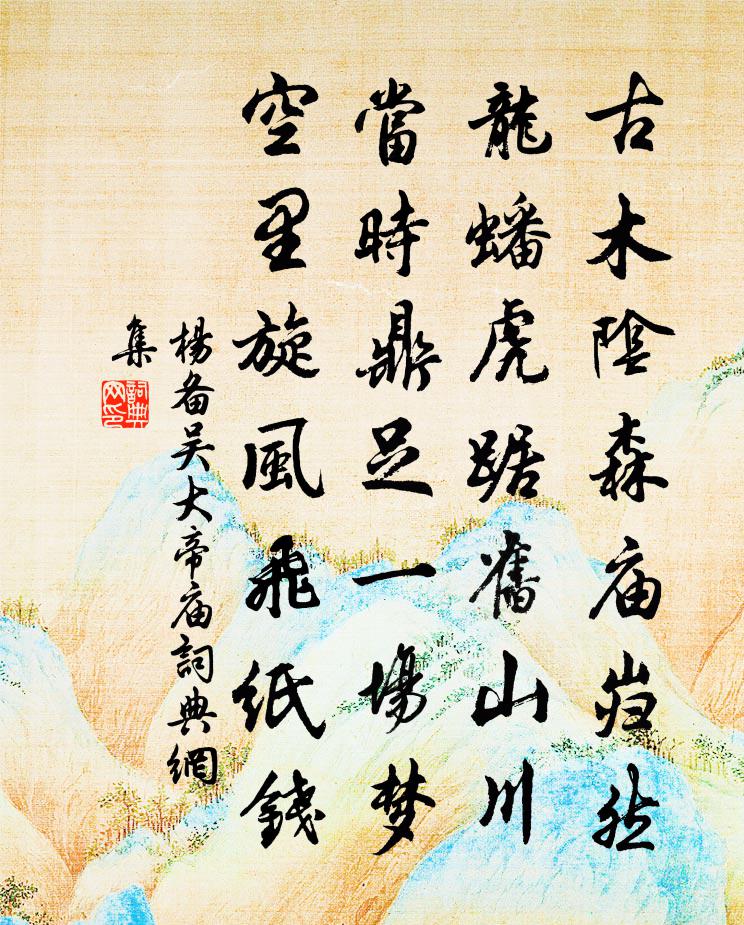 古木陰森庙岿然
龍蟠虎踞舊山川
當時鼎足一場梦
空里旋風飛紙錢
楊备吴大帝庙詞典網
集
詞典
网印